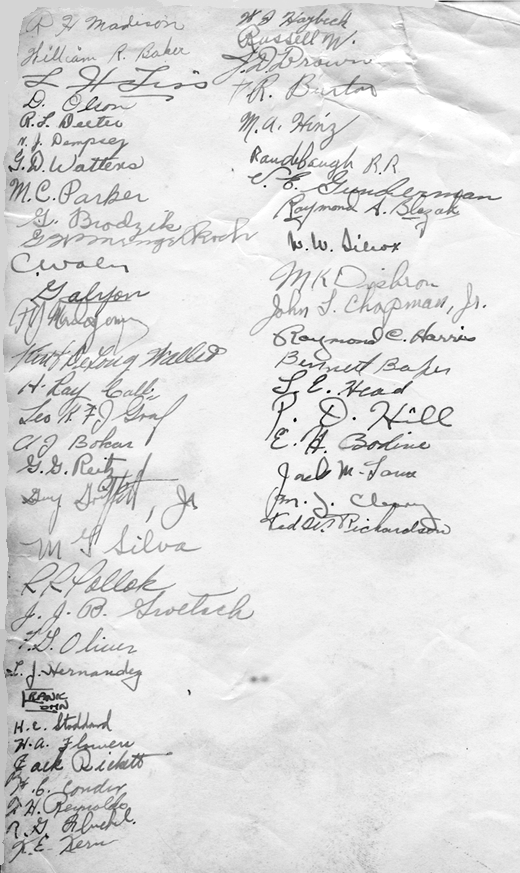 R H Madison
William R. Baker
L H Siss
D. Olson
R.L. Deeter
N. J. Dempsey
G. D. Wattens
M.C. Parker
G. Brodzik
C. Walen
Galyon
Kurt DeLong Walled
H. Ray
Leo K F J Graf
A J Bokas
G. G. Reitz
Guy Griffitt, Jr
M G Silva
R R Pollok
J. J. B. Groetsch
T. G. Oliver
L. J. Hernandez
FRANK
OHN
H. C. Stoddard
W. A. Flowers
Jack Rickett
W. C. Conder
T. H. Reynolds
R. G.
K. E. Kern
W F Haybeck
Russell W.
J. D. Brown
R. Burton
M. A. Hinz
Raudebaugh R. R
V. E. Gunderman
Raymond A. Blozak
W. W. Silcox
M K Disbron
John T. Chapman, Jr.
Raymond C. Harris
Bennett Baker
L. E. Head
P. D. Hill
E. H. Bodine
Jack M.
M. J. Cleary
Ted W. Richardson